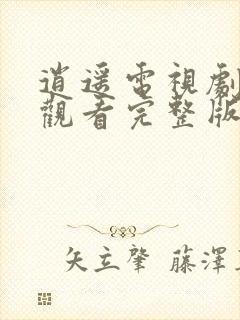 逍遥電視劇
觀看完整版
矢立肇 藤澤